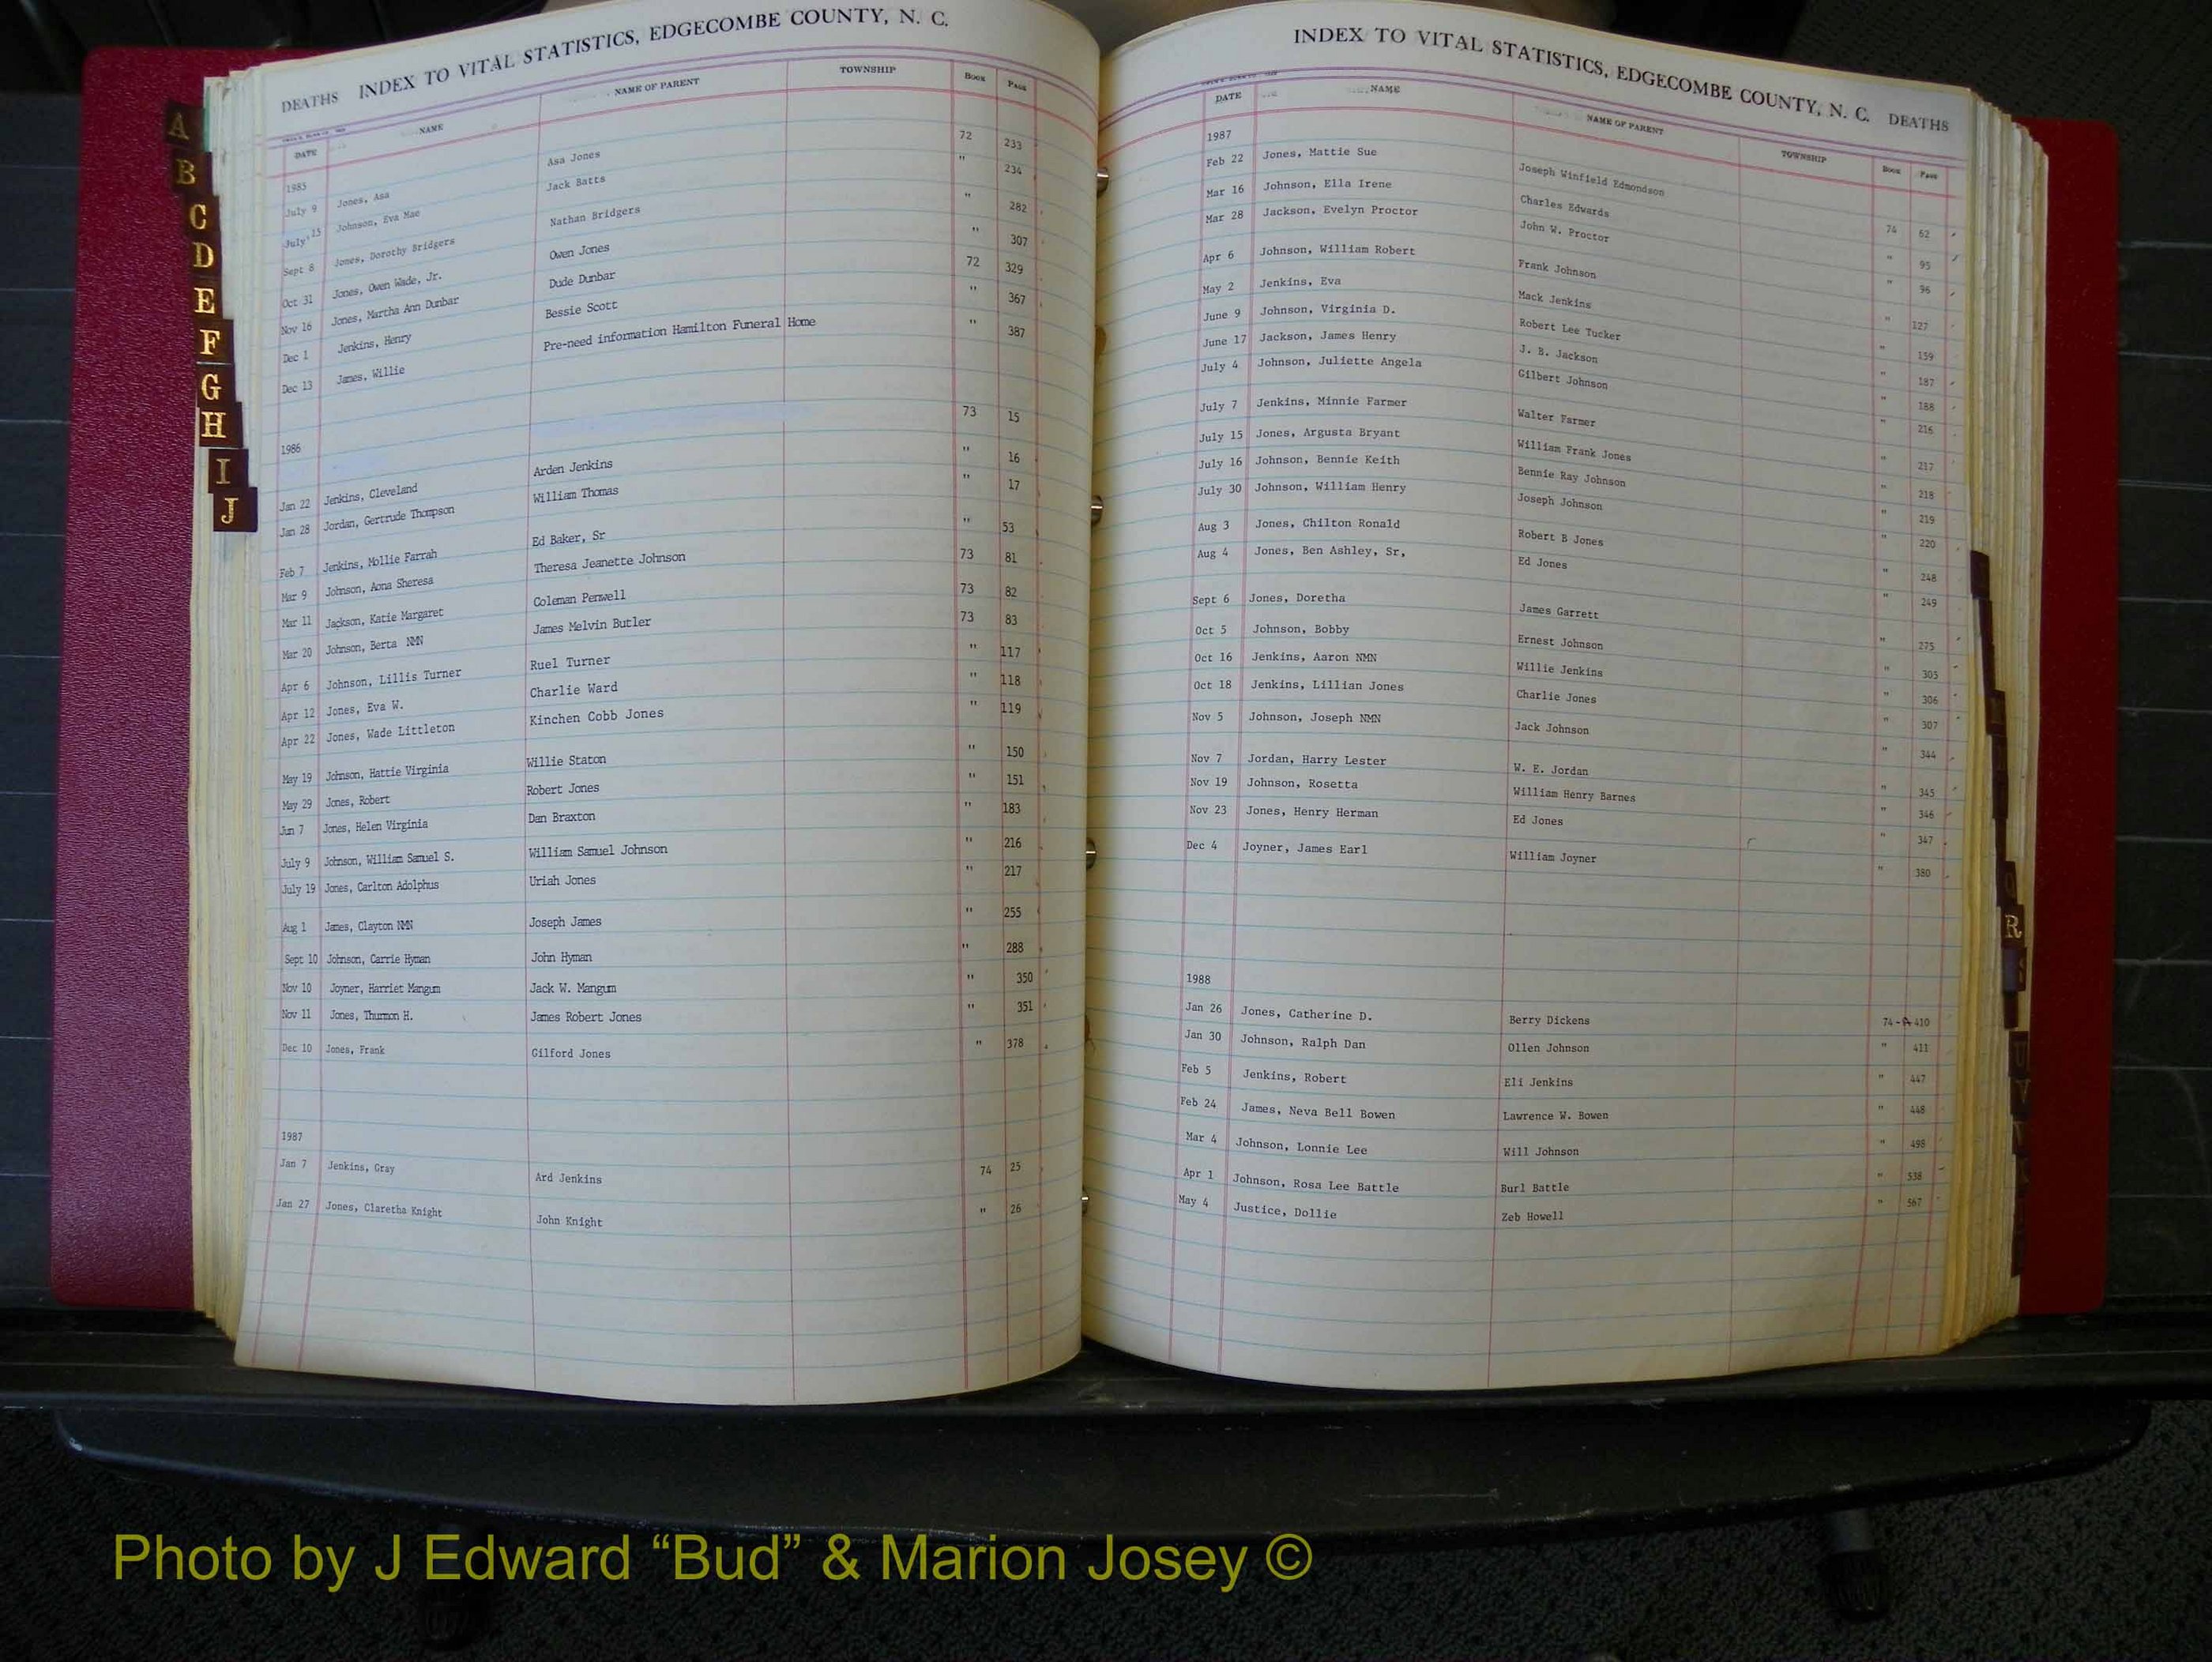 INDEX TO VITAL STATISTICS, EDGECOMBE COUNTY, N. C.
DEATHS
DATE NAME NAME OF PARENT TOWNSHIP BOOK PAGE
1985
July 9 Jones, Asa Asa Jones 72 233
July 15 Johnson, Eva Mae Jack Batts " 234
Sept 8 Jones, Dorothy Bridgers Nathan Bridgers " 282
Oct 31 Jones, Owen Wade, Jr. Owen Jones " 307
Nov 16 Jones, Martha Ann Dunbar Dude Dunbar 72 329
Dec 1 Jenkins, Henry Bessie Scott " 367
Dec 13 James, Willie Pre-need information Hamilton Funeral Home " 387
1986
Jan 22 Jenkins, Cleveland Arden Jenkins 73 15
Jan 28 Jordan, Gertrude Thompson William Thomas " 16
" 17
Feb 7 Jenkins, Mollie Farrah Ed Baker, Sr " 53
Mar 9 Johnson, Aona Sheresa Theresa Jeanette Johnson 73 81
Mar 11 Jackson, Katie Margaret Coleman Penwell 73 82
Mar 20 Johnson, Berta NMN James Melvin Butler 73 83
Apr 6 Johnson, Lillis Turner Ruel Turner " 117
Apr 12 Jones, Eva W. Charlie Ward " 118
Apr 22 Jones, Wade Littleton Kinchen Cobb Jones " 119
May 19 Johnson, Hattie Virginia Willie Staton " 150
May 29 Jones, Robert Robert Jones " 151
Jun 7 Jones, Helen Virginia Dan Braxton " 183
July 9 Johnson, William Samuel S. William Samuel Johnson " 216
July 19 Jones, Carlton Adolphus Uriah Jones " 217
Aug 1 James, Clayton NMN Joseph James " 255
Sept 10 Johnson, Carrie Hyman John Hyman " 288
Nov 10 Joyner, Harriet Mangum Jack W. Mangum " 350
Nov 11 Jones, Thurmon H. James Robert Jones " 351
Dec 10 Jones, Frank Gilford Jones " 378
1987
Jan 7 Jenkins, Gray Ard Jenkins 74 25
Jan 27 Jones, Claretha Knight John Knight " 26
A
B
C
D
E
F
G
H
I
J
INDEX TO VITAL STATISTICS, EDGECOMBE COUNTY, N. C. DEATHS
DATE NAME NAME OF PARENT TOWNSHIP BOOK PAGE
1987
Feb 22 Jones, Mattie Sue Joseph Winfield Edmondson 74 62
Mar 16 Johnson, Ella Irene Charles Edwards " 95
Mar 28 Jackson, Evelyn Proctor John W. Proctor " 96
Apr 6 Johnson, William Robert Frank Johnson " 127
May 2 Jenkins, Eva Mack Jenkins " 159
June 9 Johnson, Virginia D. Robert Lee Tucker " 187
June 17 Jackson, James Henry J. B. Jackson " 188
July 4 Johnson, Juliette Angela Gilbert Johnson " 216
July 7 Jenkins, Minnie Farmer Walter Farmer " 217
July 15 Jones, Argusta Bryant William Frank Jones " 218
July 16 Johnson, Bennie Keith Bennie Ray Johnson " 219
July 30 Johnson, William Henry Joseph Johnson " 220
Aug 3 Jones, Chilton Ronald Robert B Jones " 248
Aug 4 Jones, Ben Ashley, Sr, Ed Jones " 249
Sept 6 Jones, Doretha James Garrett " 275
Oct 5 Johnson, Bobby Ernest Johnson " 305
Oct 16 Jenkins, Aaron NMN Willie Jenkins " 306
Oct 18 Jenkins, Lillian Jones Charlie Jones " 307
Nov 5 Johnson, Joseph NMN Jack Johnson " 344
Nov 7 Jordan, Harry Lester W. E. Jordan " 345
Nov 19 Johnson, Rosetta William Henry Barnes " 346
Nov 23 Jones, Henry Herman Ed Jones " 347
Dec 4 Joyner, James Earl William Joyner " 380
1988
Jan 26 Jones, Catherine D. Berry Dickens 74-A 410
Jan 30 Johnson, Ralph Dan Ollen Johnson " 411
Feb 5 Jenkins, Robert Eli Jenkins " 447
Feb 24 James, Neva Bell Bowen Lawrence W. Bowen " 448
Mar 4 Johnson, Lonnie Lee Will Johnson " 498
Apr 1 Johnson, Rosa Lee Battle Burl Battle " 538
May 4 Justice, Dollie Zeb Howell " 567
R
Photo by J Edward “Bud” & Marion Josey ©